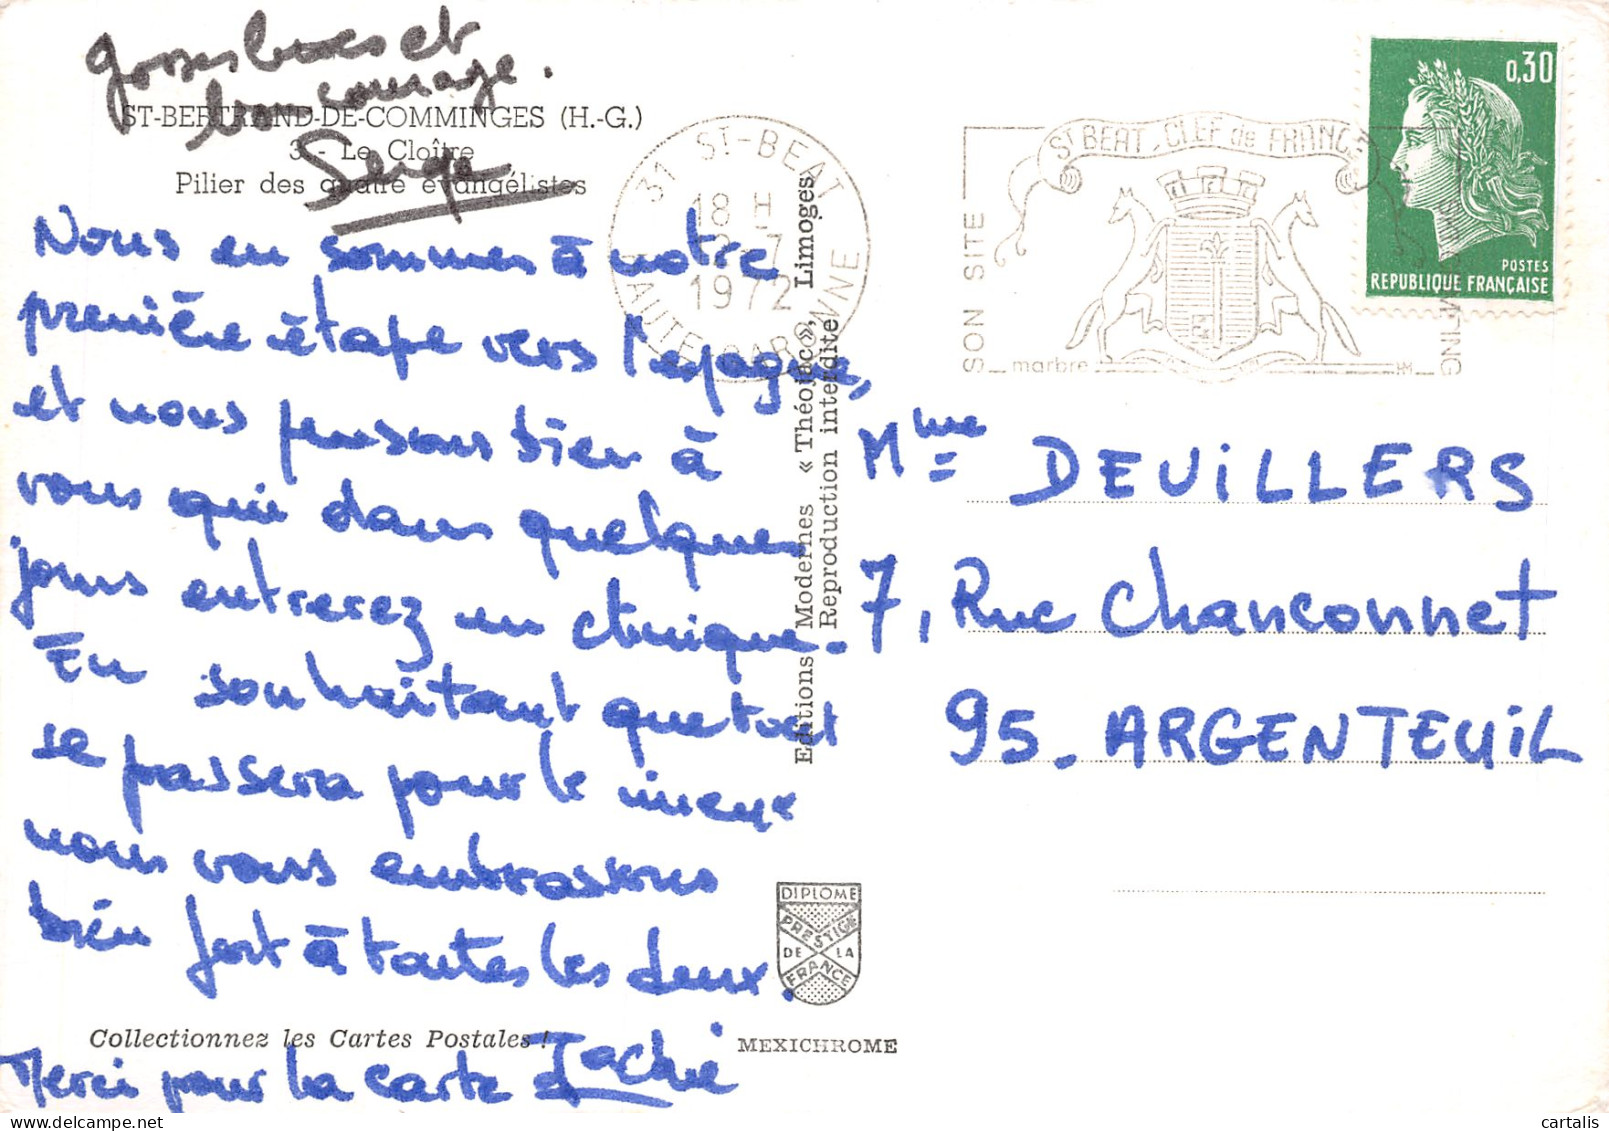 grosses bises et
bon courage.
Serge
ST-BERTRAND-DE-COMMINGES (H.-G.)
3 - Le Cloître
Pilier des quatre évangélistes
Nous en sommes à notre
première étape vers l'espagne,
et nous pensons bien à
vous qui dans quelques
jours entrerez en clinique.
En souhaitant que tout
se passera pour le mieux
nous vous embrassons
bien fort à toutes les deux.
Collectionnez les Cartes Postales !
Merci pour la carte
31 ST-BEAT
18 H
-7
1972
HAUTE-GARONNE
Editions Modernes « Théojac », Limoges
Reproduction interdite
ST BEAT, CLEF de FRANCE
SON SITE
marbre
0,30
POSTES
REPUBLIQUE FRANÇAISE
Mme DEVILLERS
7, Rue Chanconnet
95. ARGENTEUIL
DIPLOME
PRESTIGE
DE LA
FRANCE
MEXICHROME
cartalis